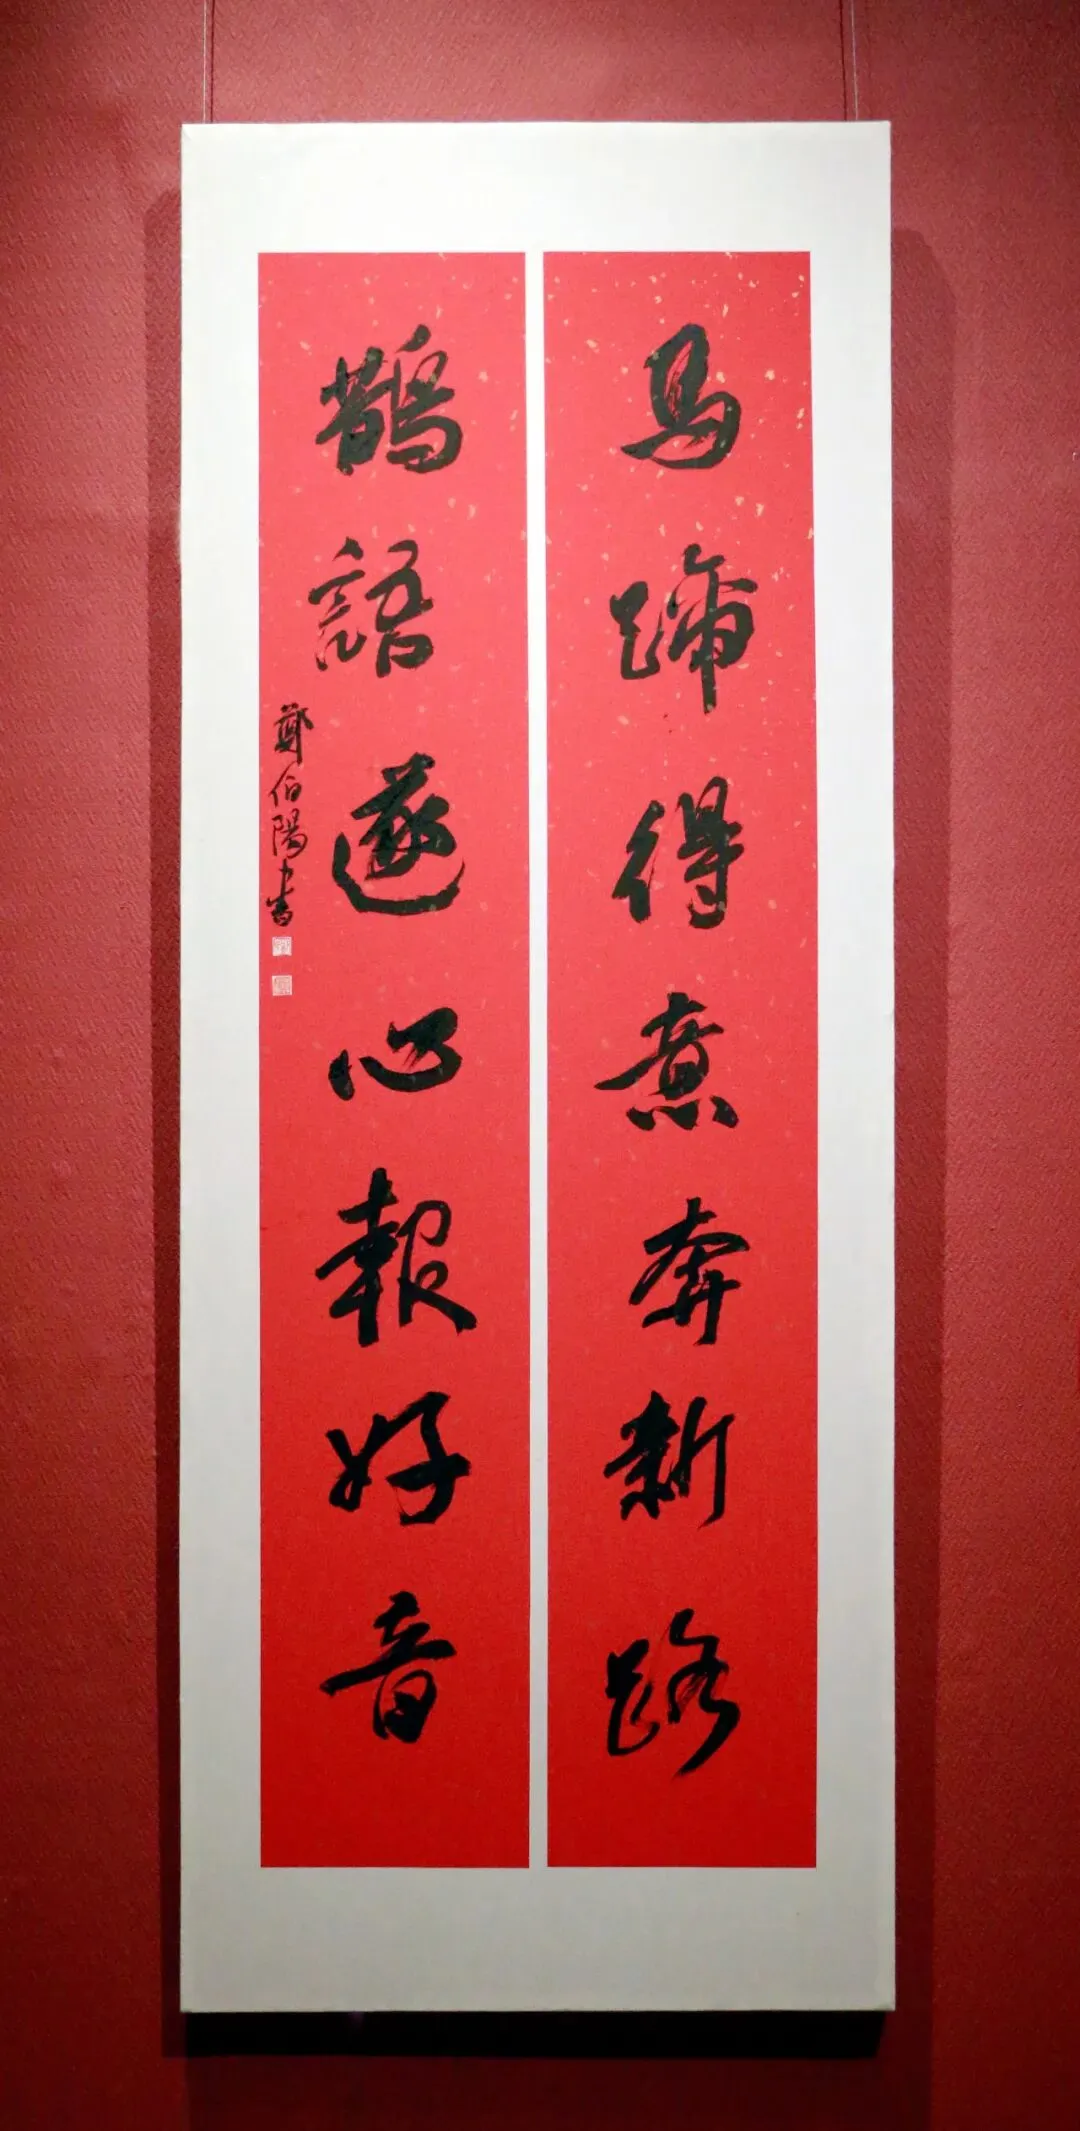 馬蹄得意奔新路
鵲語遂心報好音
鄭伯陽書